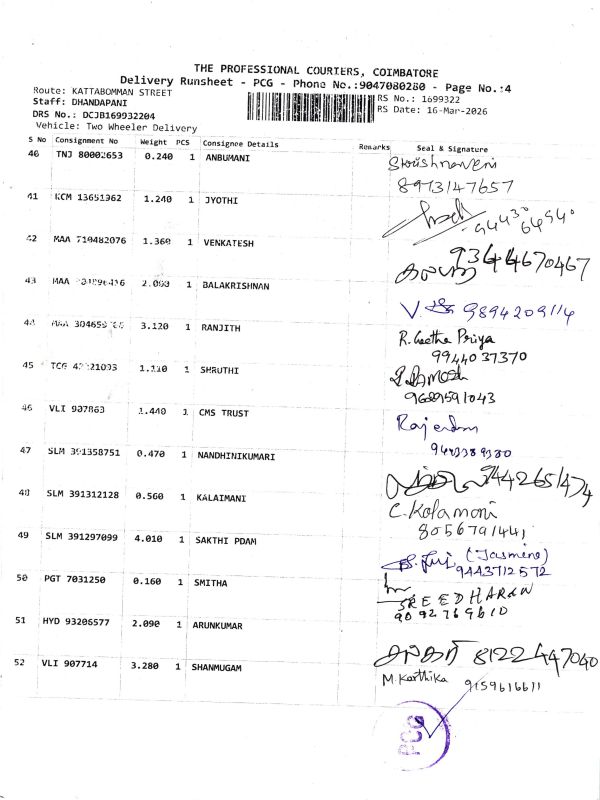 THE PROFESSIONAL COURIERS, COIMBATORE
Delivery Runsheet - PCG - Phone No.:9047080280 - Page No.:4
Route: KATTABOMMAN STREET
RS No.: 1699322
Staff: DHANDAPANI
RS Date: 16-Mar-2026
DRS No.: DCJB169932204
Vehicle: Two Wheeler Delivery
S No Consignment No Weight PCS Consignee Details Remarks Seal & Signature
40 TNJ 80002653 0.240 1 ANBUMANI
8973147657
41 KCM 13651362 1.240 1 JYOTHI
42 MAA 710482076 1.360 1 VENKATESH
9344670467
43 MAA 2.000 1 BALAKRISHNAN
9894209114
44 MAA 3.120 1 RANJITH R. Geetha Priya
9944037370
45 TCG 1.110 1 SHRUTHI
9689591043
46 VLI 907863 1.440 1 CMS TRUST Rajendran
9443389380
47 SLM 391358751 0.470 1 NANDHINIKUMARI
9442651474
48 SLM 391312128 0.560 1 KALAIMANI C. Kalamani
8056791441
49 SLM 391297099 4.010 1 SAKTHI PDAM (Jasmine)
9443712572
50 PGT 7031250 0.160 1 SMITHA
SREEDHARAN
9092769610
51 HYD 93206577 2.090 1 ARUNKUMAR
8122447040
52 VLI 907714 3.280 1 SHANMUGAM M. Karthika 9159616611
PCG